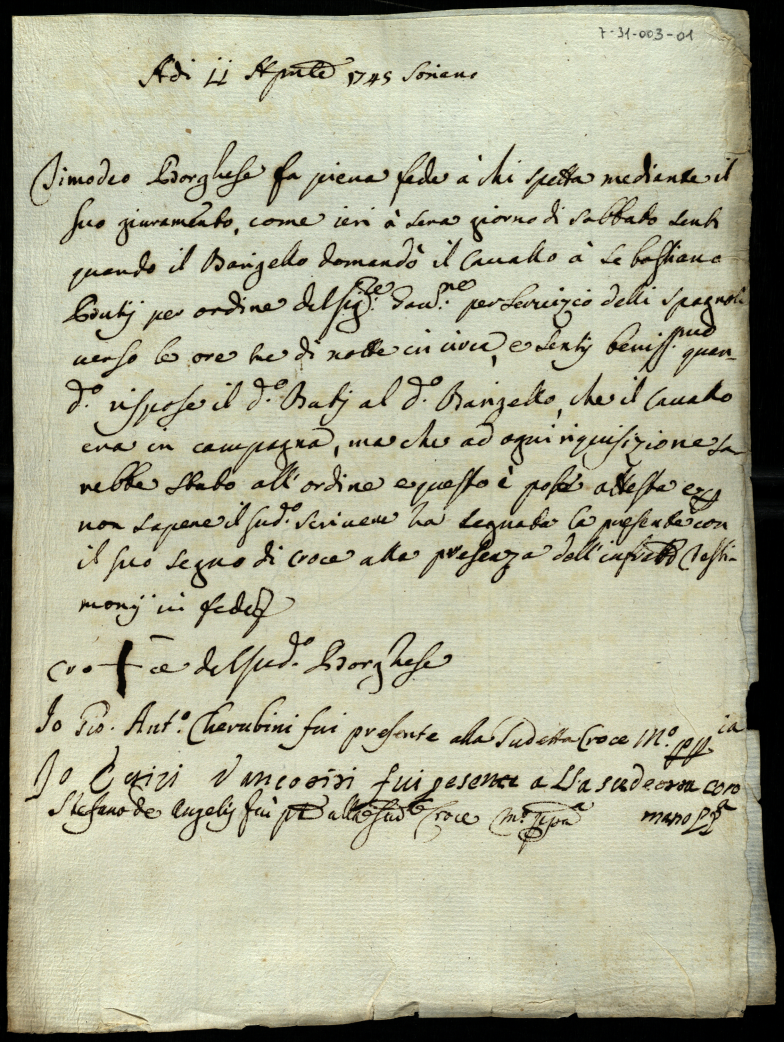 7-31-003-01
Adi 11 Aprile 1745 Soriano
Timodeo Borghese fa piena fede à chi spetta mediante il
suo giuramento, come ieri à sera giorno di Sabbato senti
quando il Barigello domandò il Cavallo à Sebastiano
per ordine del Sig.re per servizio delli Spagnoli
verso le ore tre di notte in circa, e sentij beniss.mo quan-
d.o rispose il d.o Butij al d.o Barigello, che il Cavallo
era in campagna, ma che ad ogni riquisizione sa
rebbe stato all'ordine e questo è attesta e
non sapere il sud.o scrivere ha segnata la presente con
il suo segno di croce alla presenza dell'infratti Testi-
monij in fede
cro+ce del sud.o Borghese
Io Gio. Ant.o Cherubini fui presente alla sudetta Croce M.o pp.ia
Io fui presente a lla sudetta
Stefano de Angelis fui alla sud.a Croce m.o pp.a mano pp.a